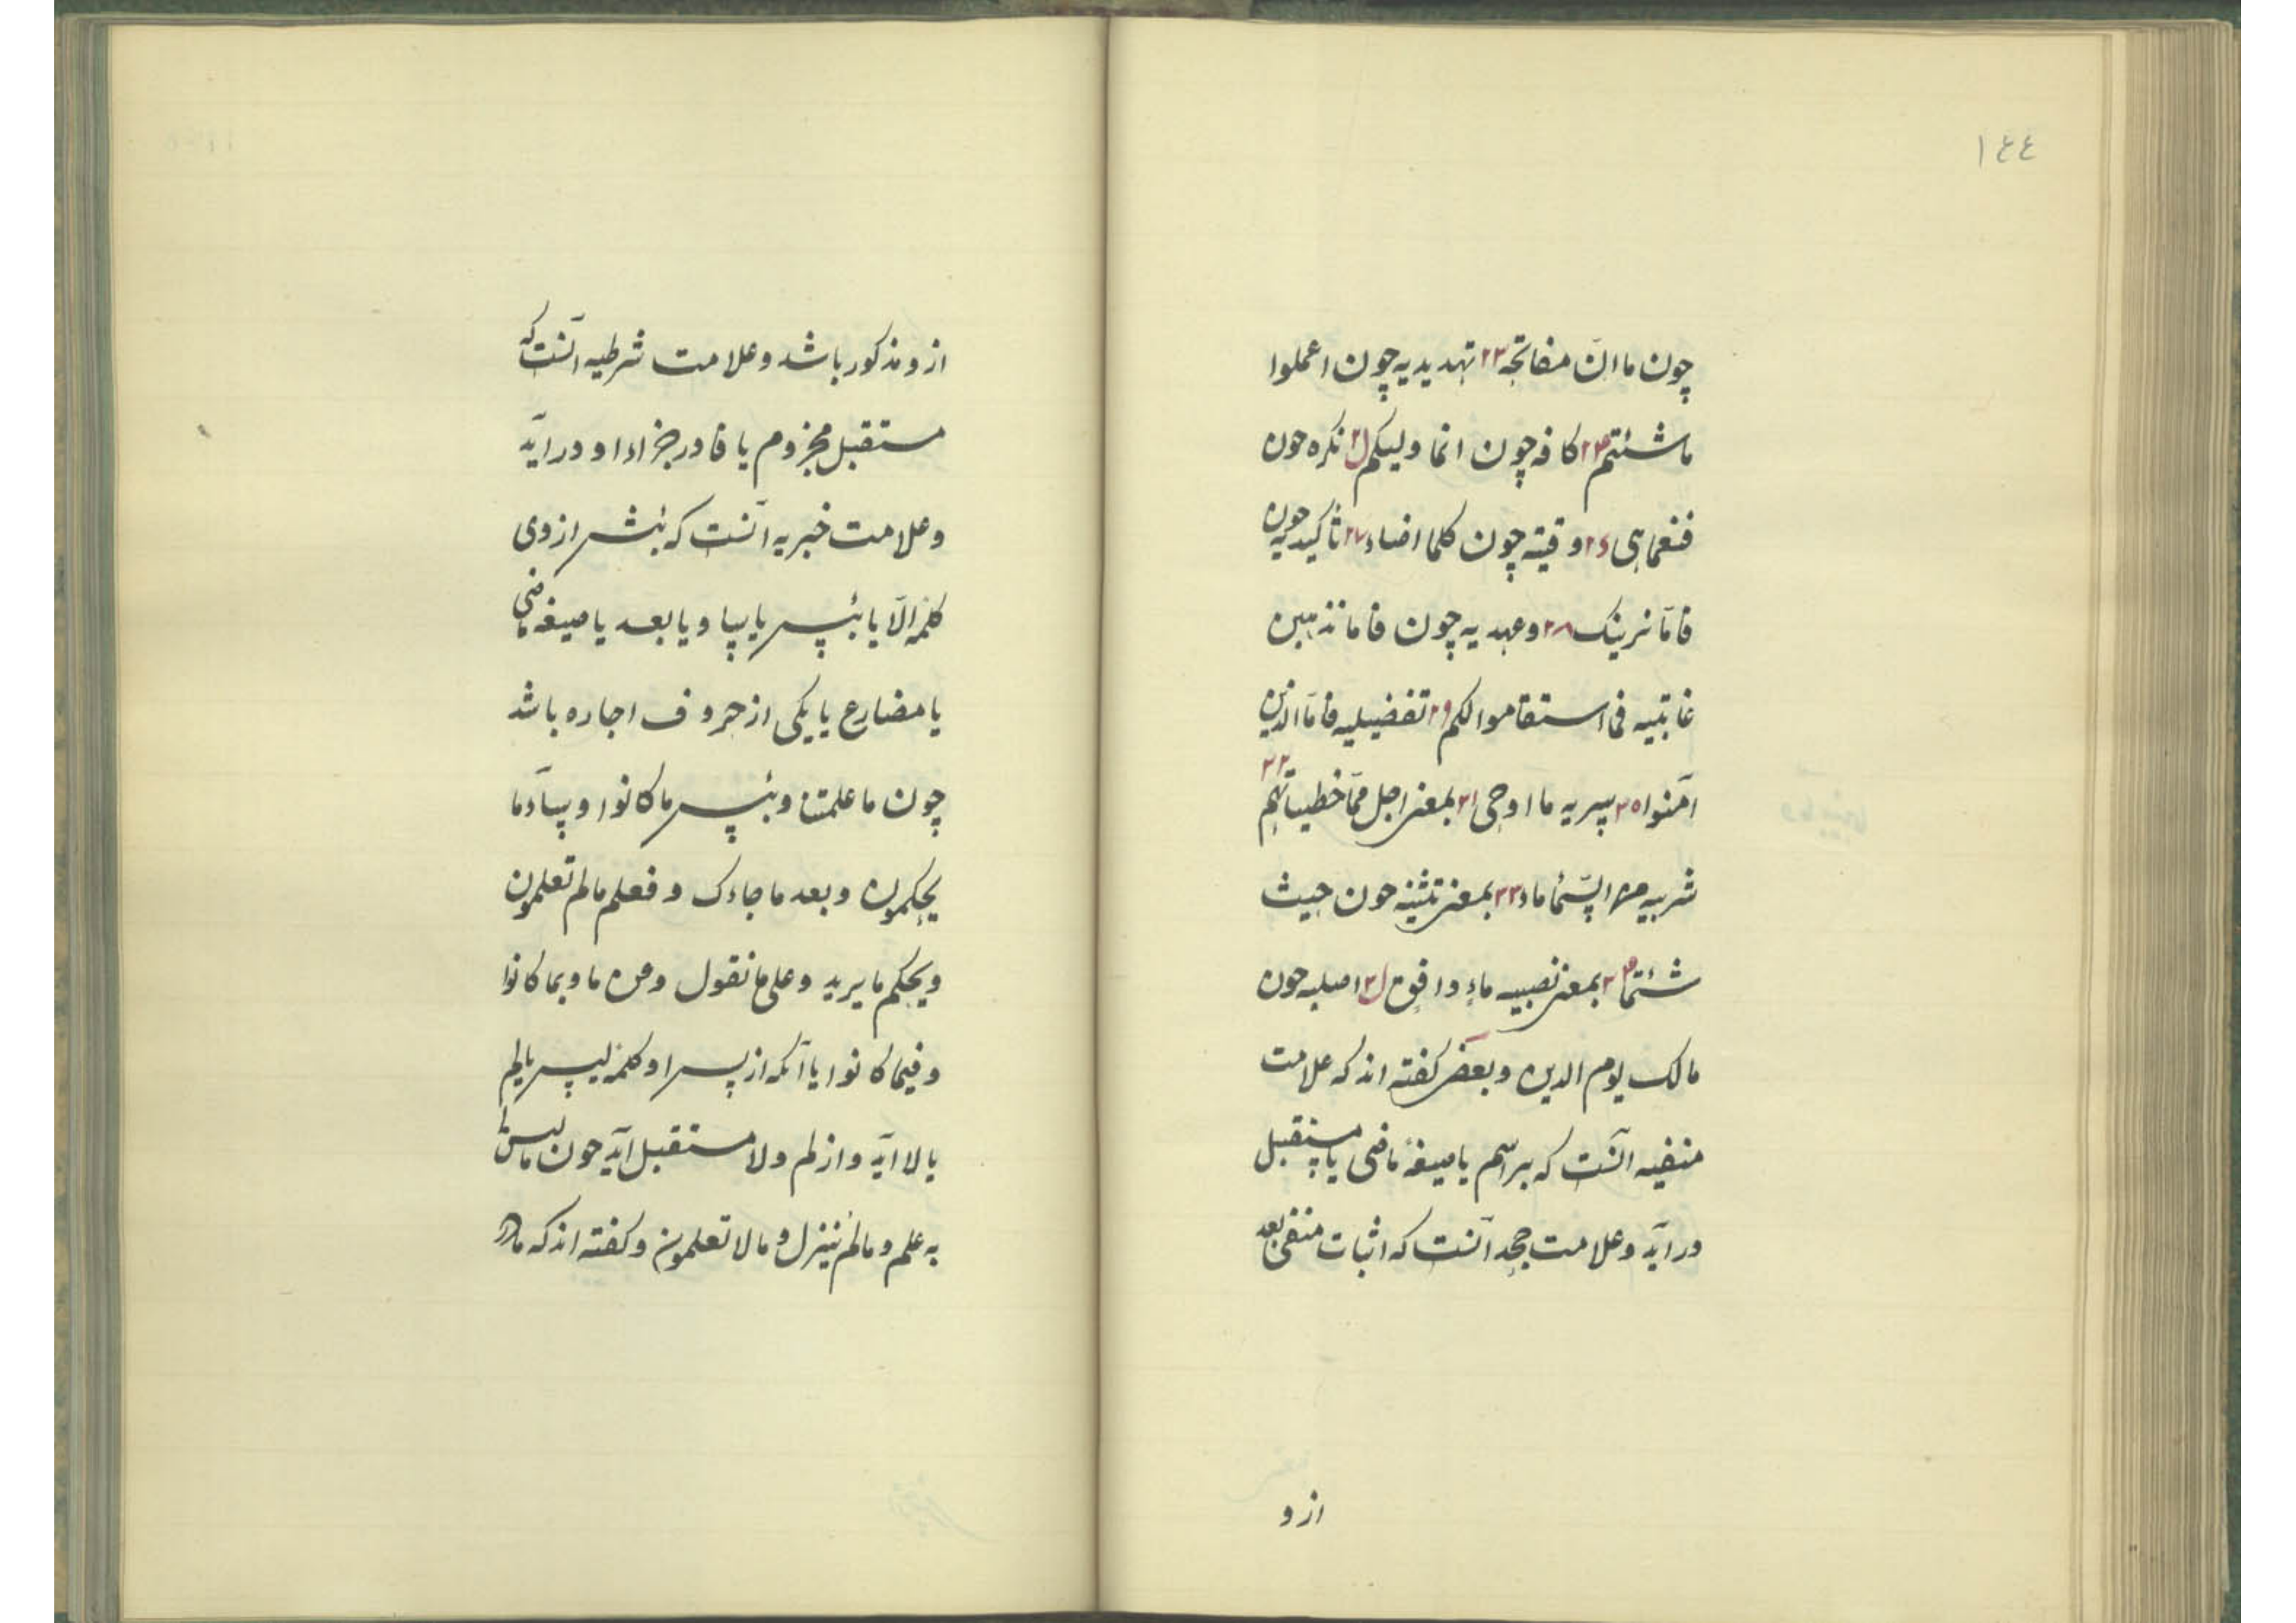 ١٤٤
چون ما ان مفاتحه ٢٣ تهدیدیه چون اعملوا
ما شئتم ٢٤ کافه چون انما ولیکم ٢۵ نکره چون
فنعما هی ٢٦ وقتیه چون کلما اضاء ٢٧ تأکیدیه چون
فامّا نرینک ٢٨ وعهدیه چون فاما نذهبن
غایتیه فما استقاموا لکم ٢٩ تفضیلیه فامّا الذین
آمنوا ٣٥ ما اوحی ٣١ بمعنی اجل ممّا خطیئاتهم ٣٢
السّماء ماء ٣٣ بمعنی تثنیه چون حیث
شئتما ٣٤ بمعنی ماء دافق ٣۵ اصلیه چون
مالک یوم الدین وبعضی کفته اند که علامت
منفیه آنست که بر اسم یا صیغهٔ ماضی یا مستقبل
در آید و علامت جحد آنست که اثبات منفی بعد
از و
از و مذکور باشد و علامت شرطیه آنست که
مستقبل مجزوم یا فا در جزاء او در آید
و علامت خبریه آنست که پیش از وی
کلمه الّا یا بئس یا ساء و یا بعد یا صیغه ماضی
یا مضارع یا یکی از حروف اجاره باشد
چون ما علمتنا و بئس ما کانوا و ساء ما
یحکمون و بعد ما جاءک و فعلم ما لم تعلمون
و یحکم ما یرید و علی ما نقول و من ما و بما کانوا
و فیما کانوا یا آنکه از پس او کلمه لیس یا لم
یا لا آید و از لم و لا مستقبل آید چون ما لیس لی
به علم و ما لم ینزل و ما لا تعلمون و کفته اند که ما